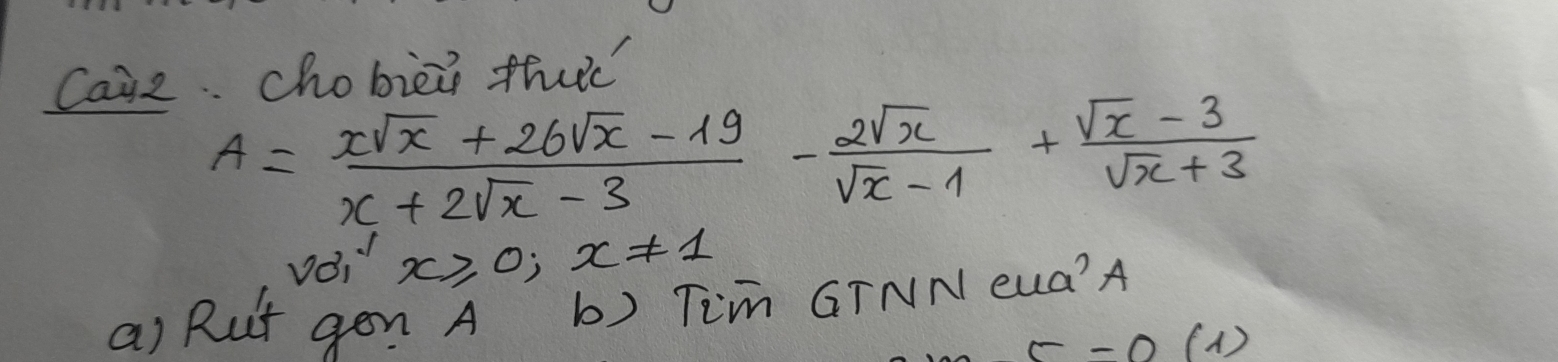 Câu 2: Cho biểu thức
A = \frac{x\sqrt{x} + 26\sqrt{x} - 19}{x + 2\sqrt{x} - 3} - \frac{2\sqrt{x}}{\sqrt{x} - 1} + \frac{\sqrt{x} - 3}{\sqrt{x} + 3}
với x ⩾ 0; x ≠ 1
a) Rút gọn A b) Tìm GTNN của A
- 5 = 0 (1)